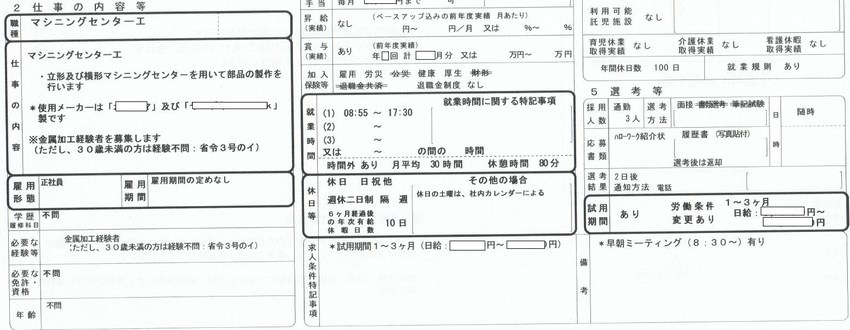 2 仕事の内容等
職種
マシニングセンター工
仕事の内容
マシニングセンター工
・立形及び横形マシニングセンターを用いて部品の製作を
行います
＊使用メーカーは「　」及び「　k」
製です
※金属加工経験者を募集します
（ただし、３０歳未満の方は経験不問：省令３号のイ）
雇用形態
正社員
雇用期間
雇用期間の定めなし
学歴
履修科目
不問
必要な経験等
金属加工経験者
（ただし、３０歳未満の方は経験不問：省令３号のイ）
必要な免許・資格
不問
年齢
不問
手当
毎月
まで
昇給
(実績)
なし
（ベースアップ込みの前年度実績 月あたり）
円～ 円／月 又は %～ %
賞与
(実績)
あり
（前年度実績）
年 回 計 月分 又は 万円～ 万円
加入保険等
雇用 労災 公災 健康 厚生 財形
退職金共済 退職金制度 なし
就業時間
就業時間に関する特記事項
(1) 08:55 ～ 17:30
(2) ～
(3) ～
又は ～ の間の 時間
時間外 あり 月平均 30時間 休憩時間 80分
休日等
休日 日祝他
その他の場合
週休二日制 隔 週
休日の土曜は、社内カレンダーによる
６ヶ月経過後の年次有給休暇日数
10日
求人条件特記事項
＊試用期間１～３ヶ月（日給： 円～ 円）
利用可能
託児施設
なし
育児休業取得実績 なし
介護休業取得実績 なし
看護休暇取得実績 なし
年間休日数 100日
就業規則 あり
5 選考等
採用人数
通勤
3人
選考方法
面接 書類選考 筆記試験
日時
随時
応募書類
ﾊﾛｰﾜｰｸ紹介状
履歴書（写真貼付）
選考後は返却
選考結果
2日後
通知方法 電話
試用期間
あり
労働条件
変更あり
１～３ヶ月
日給： 円～
円）
備考
＊早朝ミーティング（８：３０～）有り